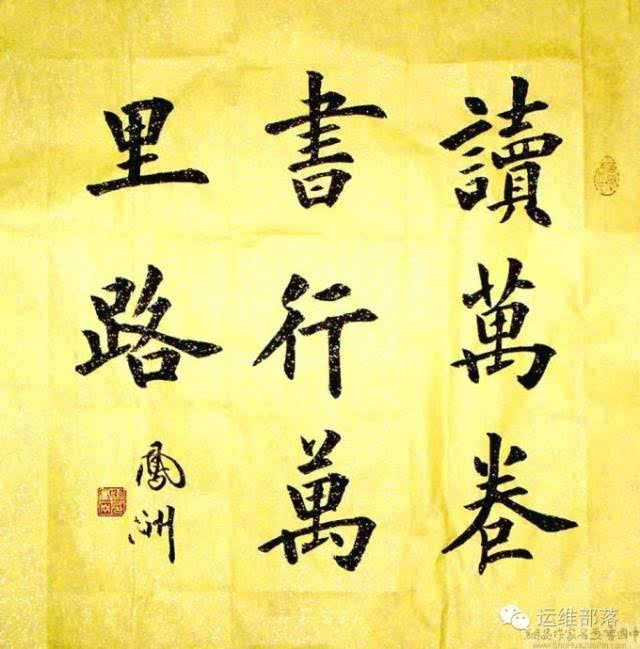 讀萬卷
書行萬
里路
鳳洲
运维部落